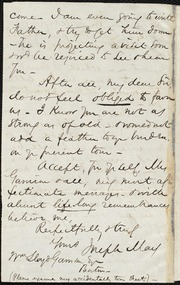 come. I am even going to write
Father, & try to get him down
he is projecting a visit soon
wd be rejoiced to see & hear
you.
After all, my dear Sir,
do not feel obliged to favor
us. I know you are not as
strong as of old & wd not
add a feather to yr burden
on yr present tour.
Accept, for yrself & Mrs
Garrison also, my most af-
fectionate messages & with
almost life-long remembrance,
believe me,
Respectfully & truly
Yours Joseph May
Wm Lloyd Garrison Esq
Boston
(Please excuse my accidentally torn sheet)